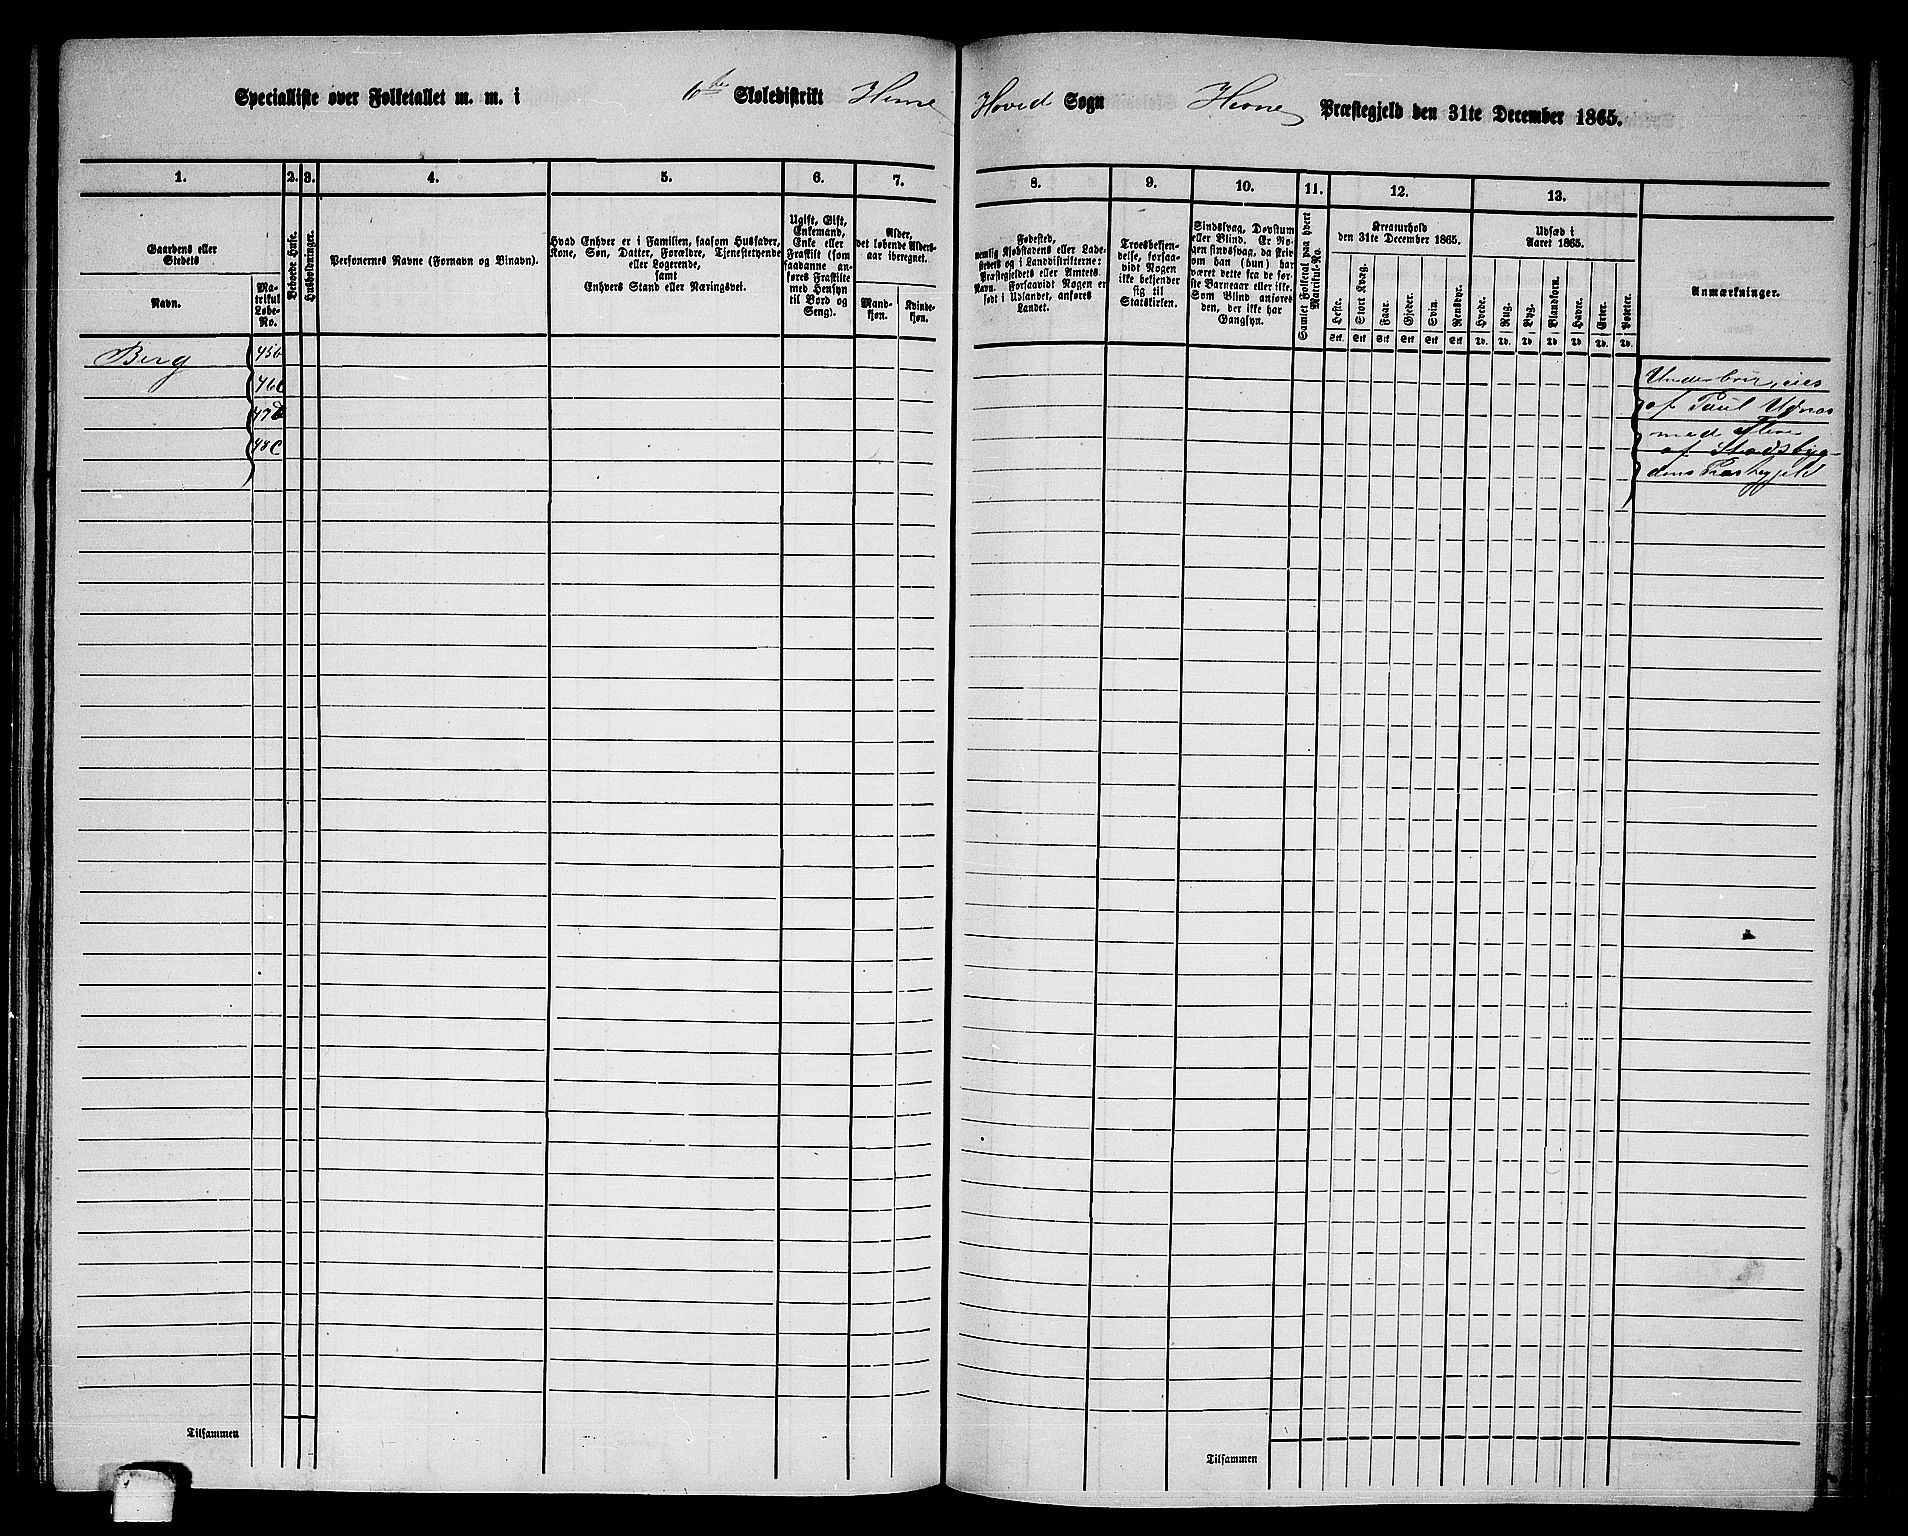 Specialliste over Folketallet m. m. i 6te Skoledistrikt Hevne Hoved Sogn Hevne Præstegjeld den 31te December 1865.
1.
2.
3.
4.
5.
6.
7.
8.
9.
10.
11.
12.
13.
Gaardens eller
Stedets
Navn.
Ma-
trikul
Løbe-
No.
Beboede Huse.
Husholdninger.
Personernes Navne (Fornavn og Binavn).
Hvad Enhver er i Familien, saasom Husfader,
Kone, Søn, Datter, Forældre, Tjenestetyende
eller Logerende,
samt
Enhvers Stand eller Næringsvei.
Ugift, Gift,
Enkemand,
Enke eller
Fraskilt (som
saadanne an-
føres Fraskilte
med Hensyn
til Bord og
Seng).
Alder,
det løbende Alders-
aar iberegnet.
Mand-
kjøn.
Kvinde-
kjøn.
Fødested,
nemlig Kjøbstadens eller Lade-
stedets og i Landdistrikterne:
Præstegjeldets eller Amtets
Navn. Forsaavidt Nogen er
født i Udlandet, anføres
Landet.
Troesbekjen-
delse, forsaa-
vidt Nogen
ikke bekjender
sig til
Statskirken.
Sindssvag, Døvstum
eller Blind. Er No-
gen sindssvag, da skrives
om han (hun) har
været dette fra de før-
ste Barneaar eller ikke.
Som Blind anføres
den, der ikke har
Gangsyn.
Samlet Folketal paa hvert
Matrikul-No.
Kreaturhold
den 31te December 1865.
Heste.
Stort Kvæg.
Faar.
Gjeder.
Svin.
Rensdyr.
Stk. Stk. Stk. Stk. Stk. Stk.
Udsæd i
Aaret 1865.
Hvede.
Rug.
Byg.
Blandkorn.
Havre.
Erter.
Poteter.
Td. Td. Td. Td. Td. Td. Td.
Anmærkninger.
Berg 45b
46c
47d
48c
Underbrur, eies
af Paul Udnæs
med flere
af Stadsbyg-
dens Præstegjeld
Tilsammen
Tilsammen